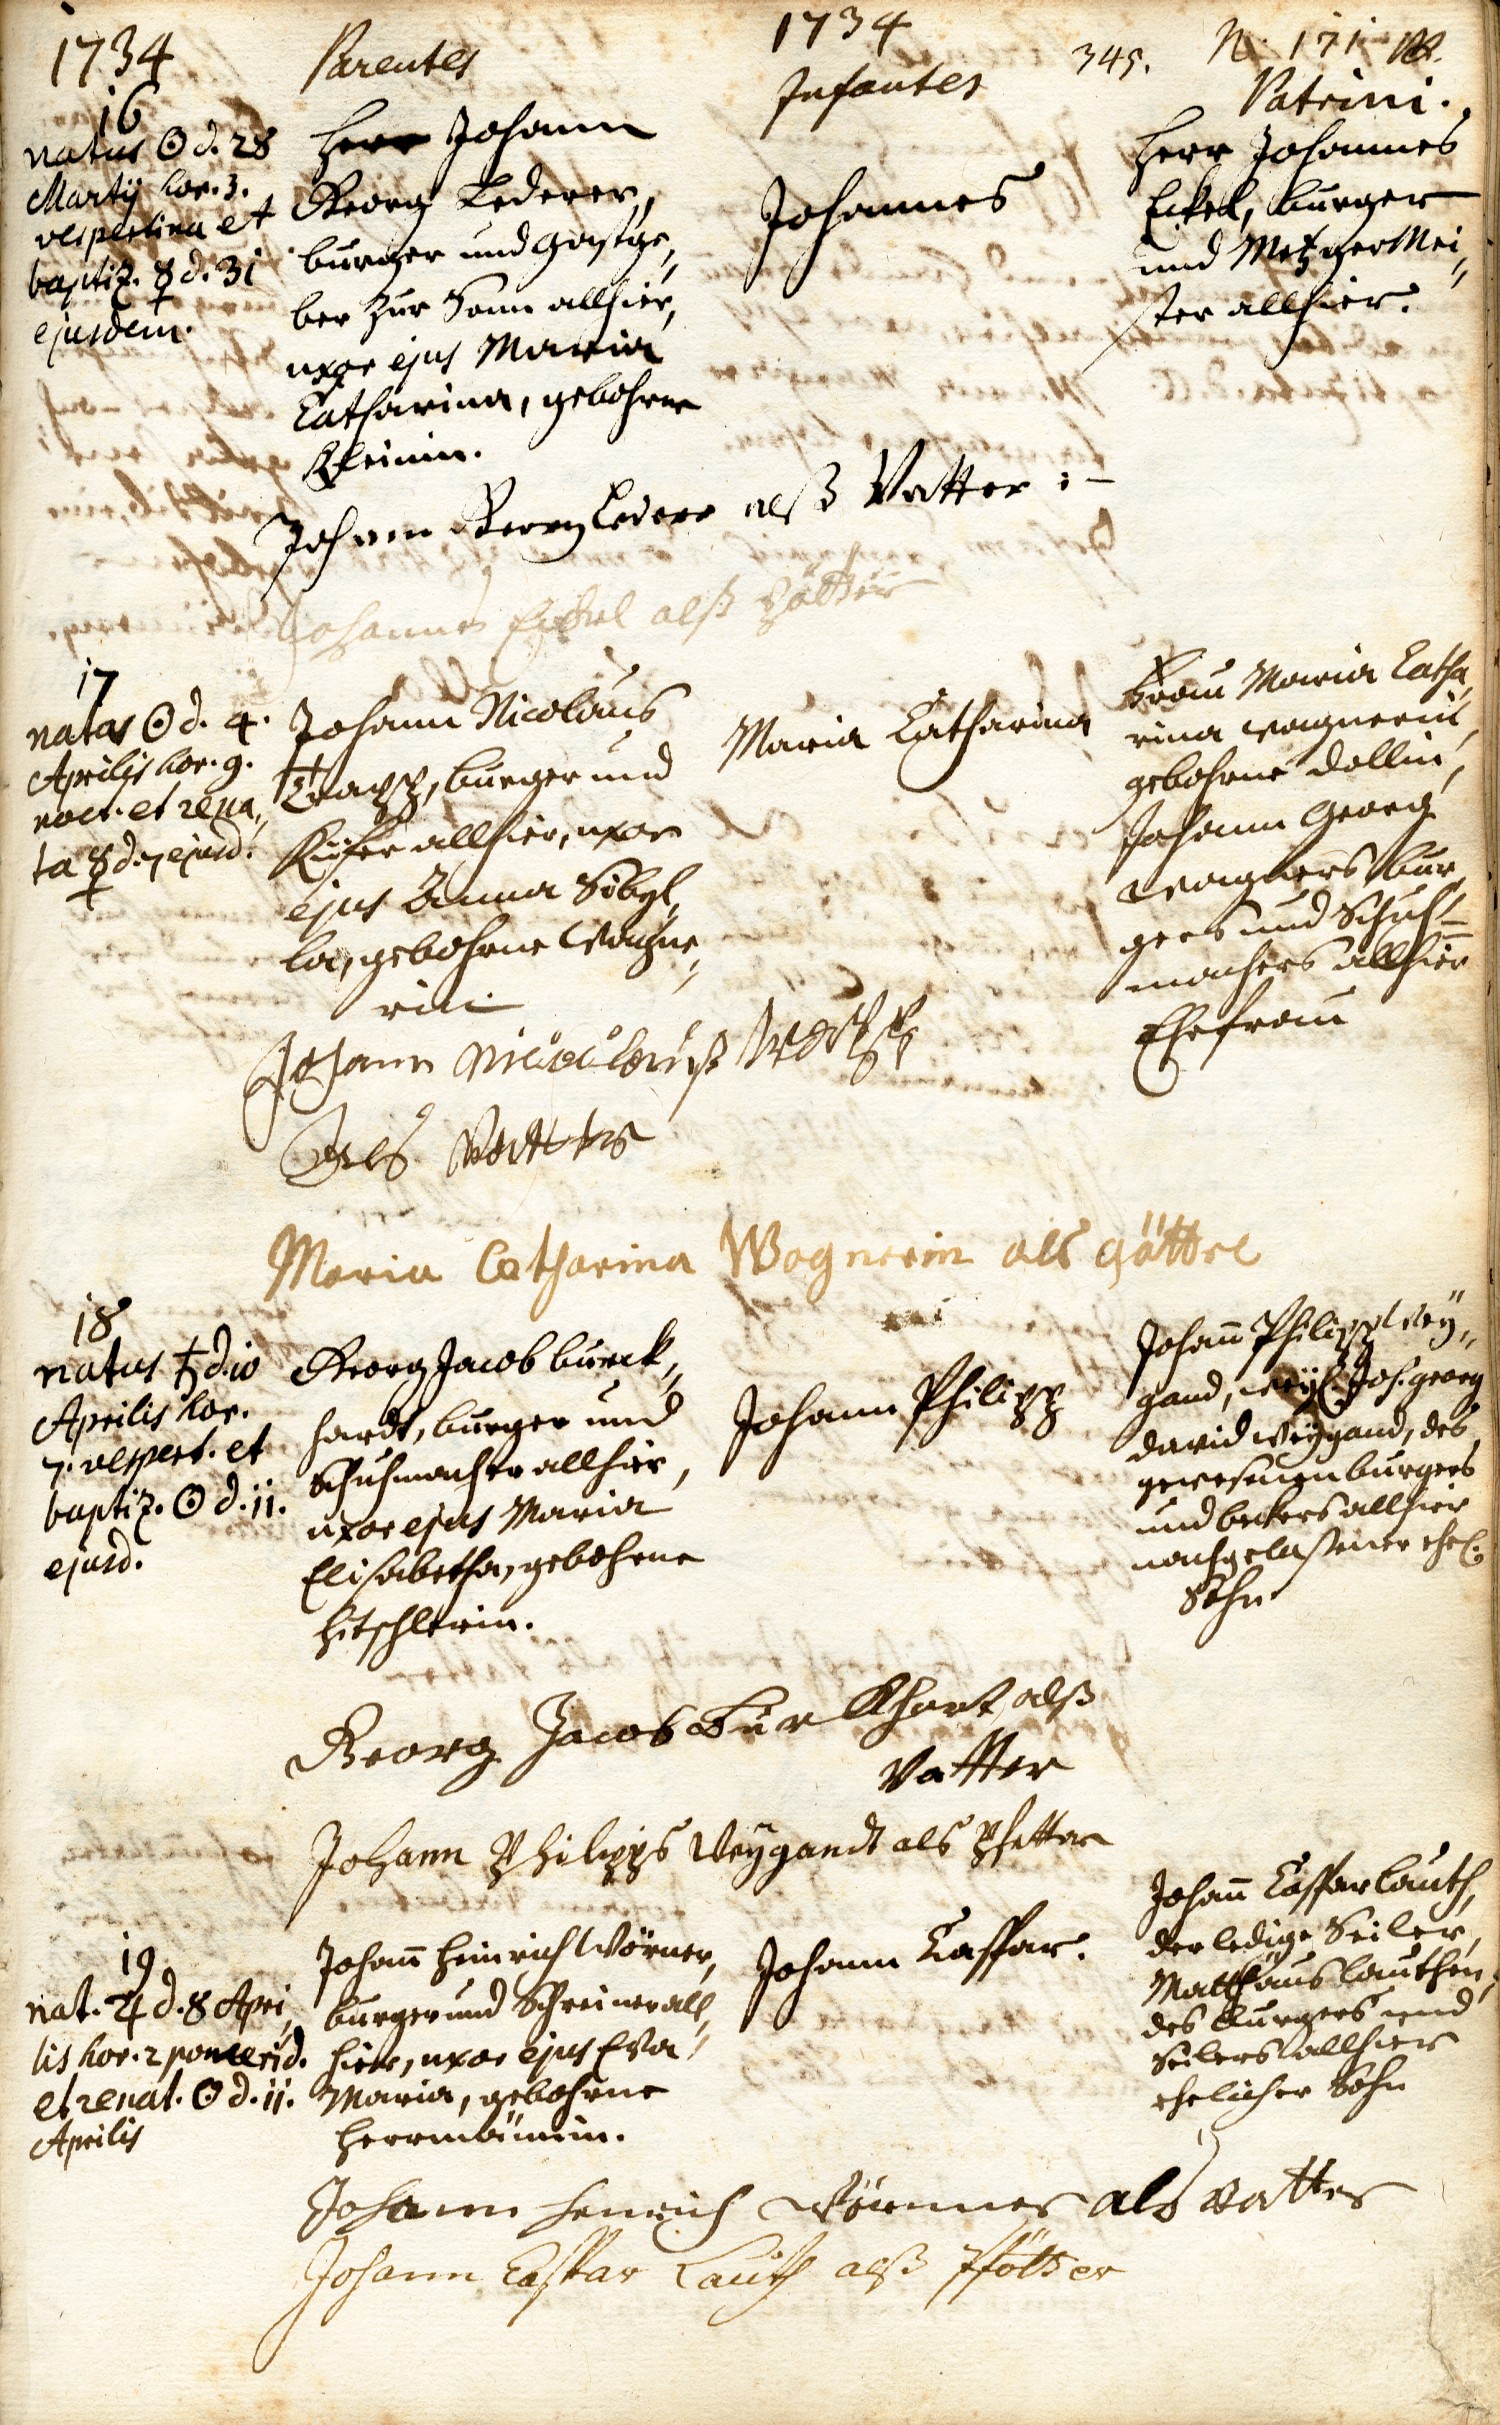 1734
Parentes
1734
Infantes
345. N. 171
Patrini.
16
natus ☉ d. 28
Martij hor. 3.
vespertina et
baptiz. ☿ d. 31
ejusdem.
Herr Johann
Georg Lederer,
burger und Gastge„
ber zur Sonn allhier,
uxor ejus Maria
Catharina, gebohrne
Kleinin.
Johannes
Herr Johannes
Eckel, burger
und Metzger Mei„
ster allhier.
Johann Georg Lederer alß Vatter :-
Johannes Eckel alß
17
natas ☉ d. 4.
Aprilis hor. 9.
noct. et rena„
ta ☿ d. 7 ejusd.
Johann Nicolaus
Trapp, burger und
Küfer allhier, uxor
ejus Anna Sibyl„
la, gebohrne Wagne„
rin
Maria Catharina
Frau Maria Catha„
rina Wagnerin,
gebohrne Dollin,
Johann Georg
Wagners bur„
gers und Schuh-
machers allhier
Ehefrau
Johann Nicolauß
Als Vatter
Maria Catharina Wagnerin als Göttel
18
natus ♄ d. 10
Aprilis hor.
7. vespert. et
baptiz. ☉ d. 11.
ejusd.
Georg Jacob burck„
hardt, burger und
Schuhmacher allhier,
uxor ejus Maria
Elisabetha, gebohrne
Hitschlerin.
Johann Philipp
Johann̄ Philipp Wey„
gand, weyl. Joh. Georg
David Weygand, des
gewesenen burgers
und beckers allhier
nachgelaßener ehel.
Sohn
Georg Jacob Burckhart alß
Vatter
Johann Philipps Weygandt als Pfetter
19
nat. ♃ d. 8 Apri„
lis hor. 2 pomerid.
et renat. ☉ d. 11.
Aprilis
Johan̄ Heinrich Wörner,
burger und Schreiner all„
hier, uxor ejus Eva
Maria, gebohrne
Herrmännin.
Johann Casspar.
Johan̄ Casspar Lauth,
der ledige Seiler,
Matthäus Lauthen,
des burgers und
Seilers allhier
ehelicher Sohn
Johann Henrich Wörnner als Vatter
Johann Casspar Lauth alß Pfötter